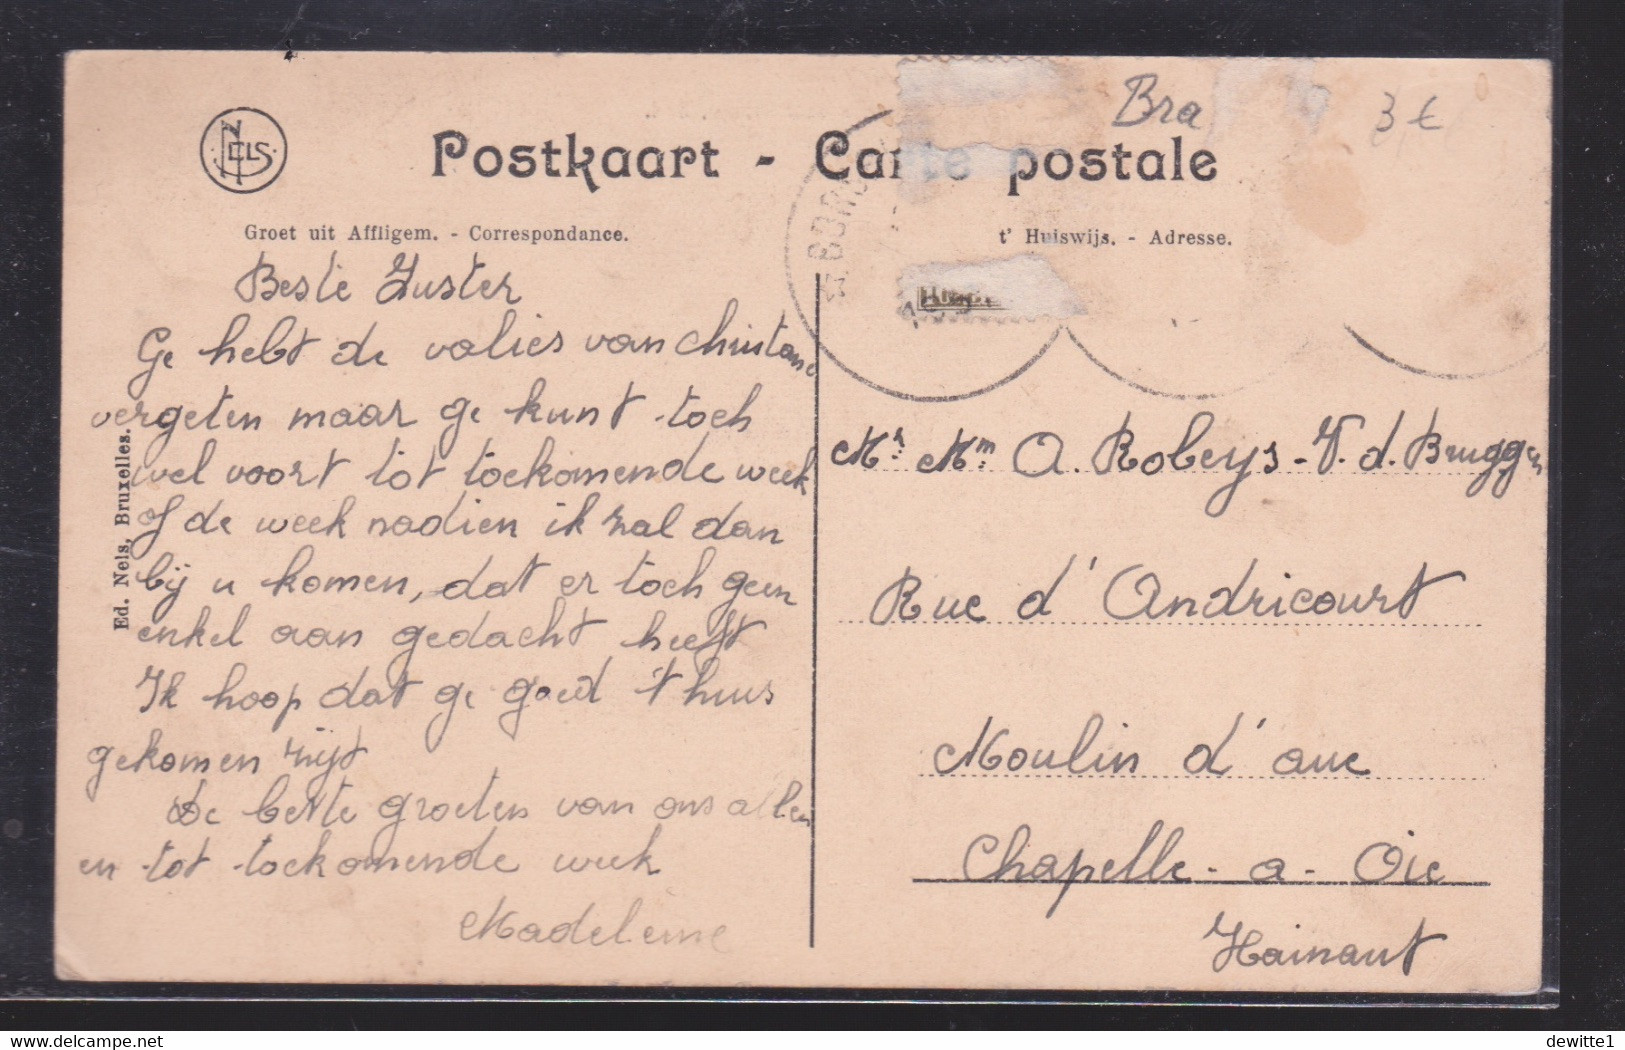 NELS
Postkaart - Carte postale
Bra
3 €
Groet uit Affligem. - Correspondance.
t' Huiswijs. - Adresse.
Beste Zuster
Ge hebt de valies van
vergeten maar ge kunt toch
wel voort tot toekomende week
of de week nadien ik zal dan
bij u komen, dat er toch geen
enkel aan gedacht heeft
Ik hoop dat ge goed 't huis
gekomen zijt
De beste groeten van ons allen
en tot toekomende week
Madeleine
Ed. Nels, Bruxelles.
Mr. Mm. A. Robeys - V. d. Bruggen
Rue d' Andricourt
Moulin d' aue
Chapelle - a - Oie
Hainaut
delcampe.net
dewitte1